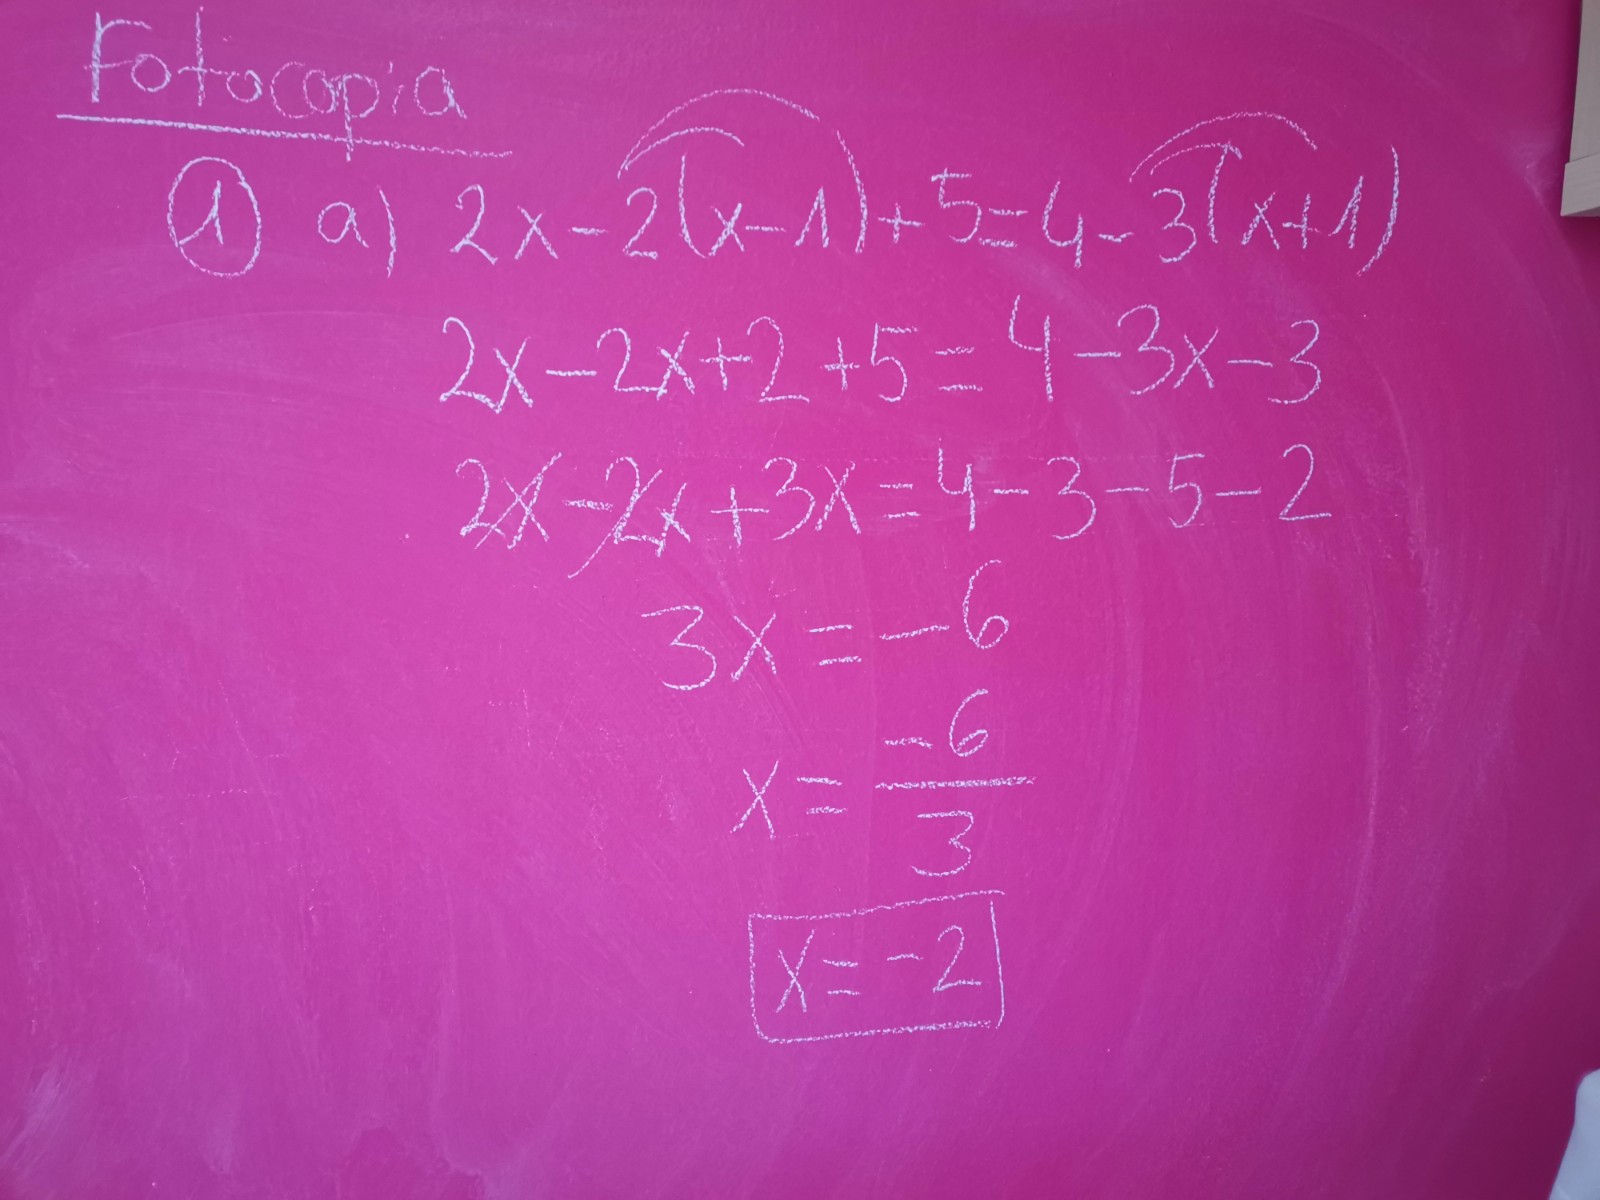 Fotocopia
① a) 2x-2(x-1)+5=4-3(x+1)
2x-2x+2+5=4-3x-3
2x-2x+3x=4-3-5-2
3x=-6
x=-6/3
x=-2